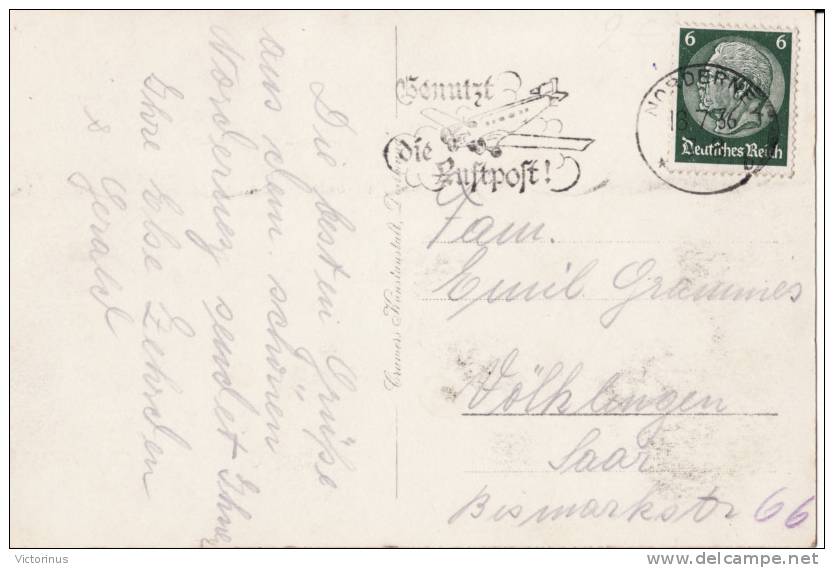 Die besten Grüße
aus dem schönen
Norderney sendet Ihnen
Ihre Else Zehrden
& Gerald
Cramers Kunstanstalt,
Benutzt
die
Luftpost!
6 6
Deutsches Reich
NORDERNEY
18.7.36
Fam.
Emil Grammes
Völklingen
Saar
Bismarkstr 66
Victorinus
delcampe.net